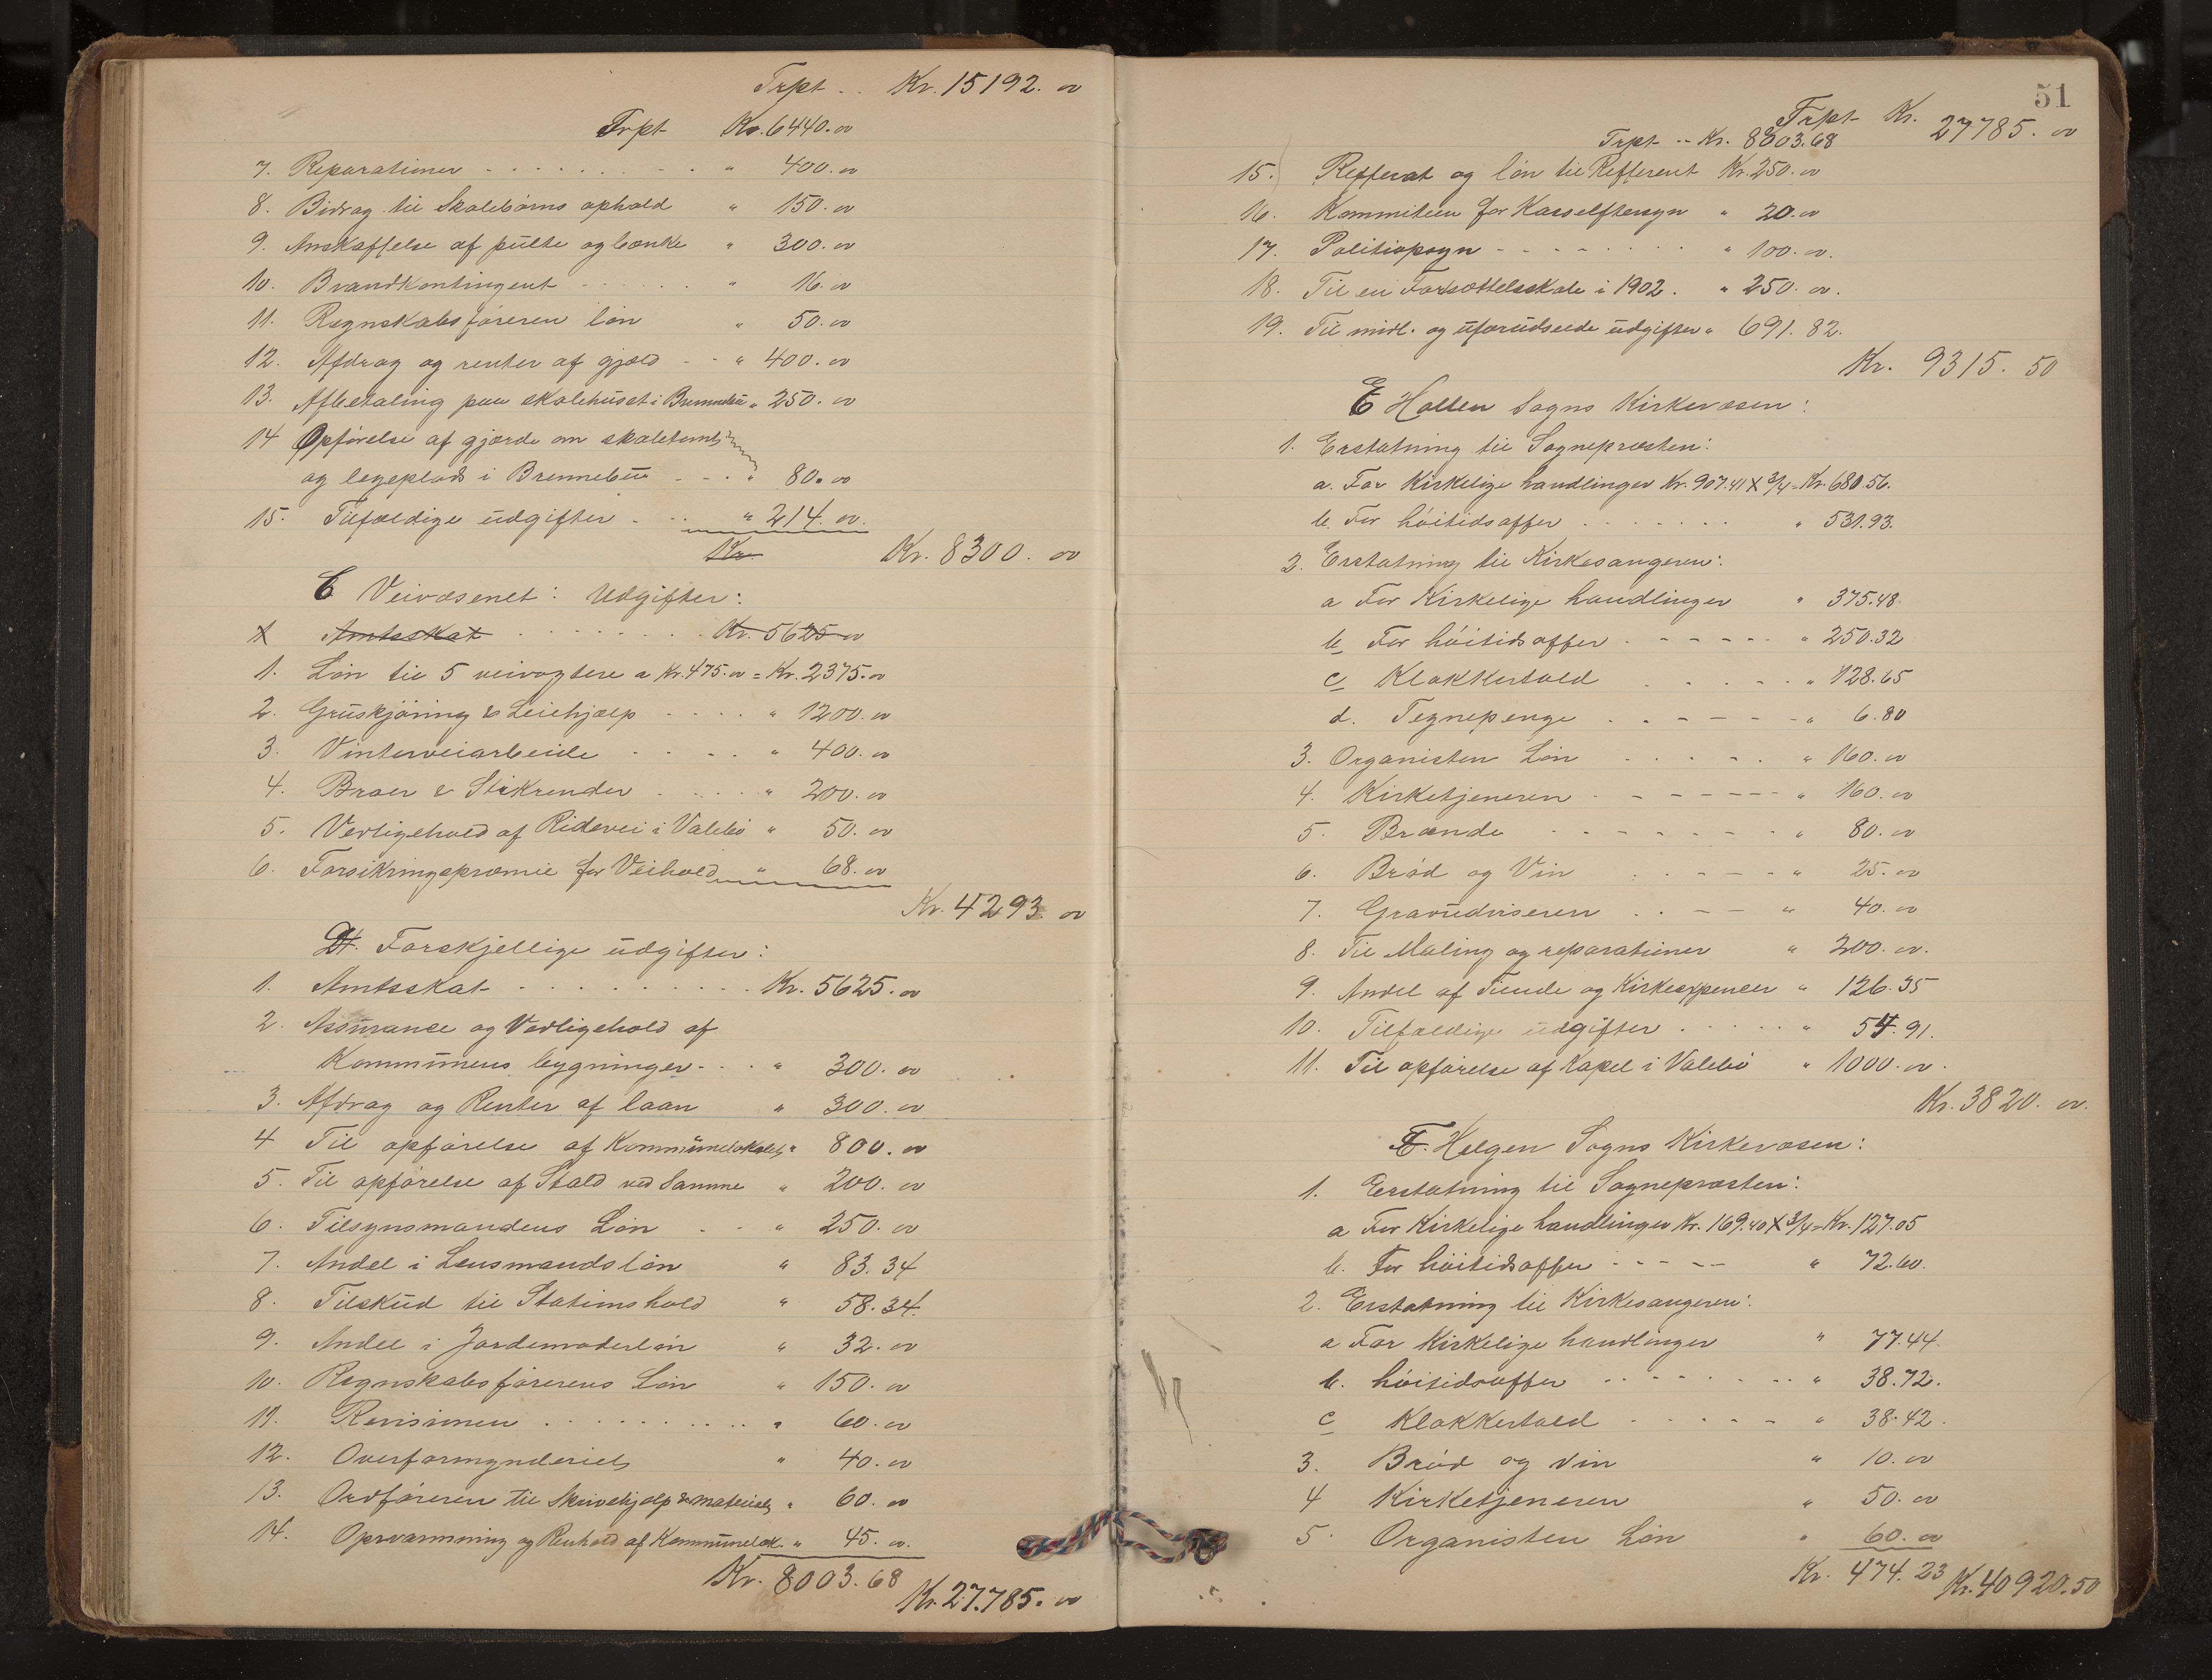 Trpt .. Kr. 15192. 00
Trpt Kr. 6440. 00
7. Reparationer " 400. 00
8. Bidrag til Skolebörns ophold " 150. 00
9. Anskaffelse af pülte og bænke " 300. 00
10. Brandkontingent " 16. 00
11. Regnskabsföreren lön " 50. 00
12. Afdrag og renter af gjæld " 400. 00
13. Afbetaling paa skolehüset i " 250. 00
14 Opförelse af gjærde om skoletomt
og legeplads i Brennebu " 80. 00
15. Tilfældige üdgifter " 214. 00
Kr. Kr. 8300. 00
C Veivæsenet: Udgifter:
1 Amtsskat Kr. 5625 00
1. Lön til 5 veivogtere a Kr. 475. 00 = Kr. 2375. 00
2. Grüskjöring & Leiehjælp " 1200. 00
3. Vinterveiarbeide " 400. 00
4. Broer & Stikrender " 200. 00
5. Vedligehold af Ridevei i Valebö " 50. 00
6. Forsikringspræmie for Veihold " 68. 00
Kr. 4293 00
D. Forskjellige üdgifter:
1. Amtsskat Kr. 5625. 00
2. Assürance og Vedligehold af
Kommünens bygninger " 300. 00
3. Afdrag og Renter af laan " 300. 00
4 Til opförelse af Kommünelokalet " 800. 00
5. Til opförelse af Stald ved Samme " 200. 00
6. Tilsynsmandens Lön " 250. 00
7. Andel i Lensmandslön " 83. 34
8. Tilsküd til Stationshold " 58. 34.
9. Andel i Jordemoderlön " 32. 00
10. Regnskabsförerens Lön " 150. 00
11. Revisionen " 60. 00
12. Overformynderiet " 40. 00
13. Ordföreren til Skrivehjælp & materiel " 60. 00
14. Opvarmning og Renhold af Kommünelok. " 45. 00.
Kr. 8003. 68
Kr. 27.785. 00
51
Trpt Kr. 27785. 00
Trpt .. Kr. 8003.68
15. Refferat og lön til Refferent Kr. 250. 00
16. Kommiteen for Kasseeftersyn " 20. 00
17. Politiopsyn " 100. 00.
18. Til en Forsættelsskole i 1902. " 250. 00.
19. Til midl. og üforüdseede üdgifter " 691. 82.
Kr. 9315. 50
E Holden Sogns Kirkevæsen:
1. Erstatning til Sognepræsten:
a. For Kirkelige handlinger Kr. 907.41 X 3/4 = Kr. 680 56.
b. For höitidsoffer " 531.93.
2. Erstatning til Kirkesangeren:
a For Kirkelige handlinger " 375.48.
b. For höitidsoffer " 250.32
c Klokkertold " 128.65
d. Tegnepenge " 6.80
3. Organisten Lön " 160. 00
4. Kirketjeneren " 160. 00
5. Brænde " 80. 00
6. Bröd og Vin " 25. 00
7. Gravüdviseren " 40. 00
8. Til Maling og reparationer " 200. 00.
9. Andel af Tiende og Kirkeexpencer " 126.35
10. Tilfældige üdgifter " 54. 91.
11. Til opförelse af Kapel i Valebö " 1000. 00.
Kr. 3820. 00.
F. Helgen Sogns Kirkevæsen:
1. Erstatning til Sognepræsten:
a For Kirkelige handlinger Kr. 169.40 X 3/4 = Kr. 127.05
b. For höitidsoffer " 72.60.
2. Erstatning til Kirkesangeren:
a For Kirkelige handlinger " 77.44.
b. höitidsoffer " 38.72.
c Klokkertold " 38.42.
3. Bröd og Vin " 10. 00
4 Kirketjeneren " 50. 00
5. Organisten Lön " 60. 00
Kr. 474. 23 Kr. 40920.50